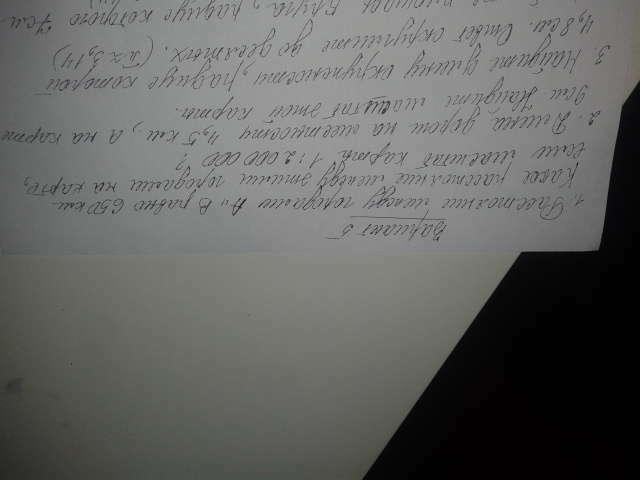 Вариант 5
1. Расстояние между городами А и В равно 650 км.
Какое расстояние между этими городами на карте,
если масштаб карты 1:2 000 000?
2. Длина дороги на местности 4,5 км, а на карте
9 см. Найдите масштаб этой карты.
3. Найдите длину окружности, радиус которой
4,8 см. Ответ округлите до десятых. (π≈3,14)
площадь круга, радиус которого 7 см